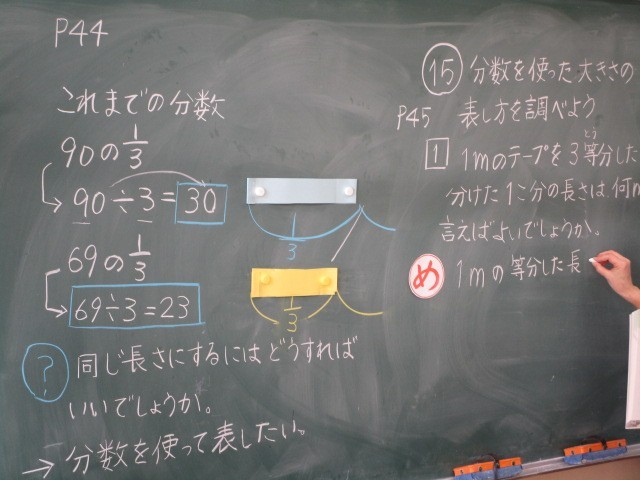 P44
これまでの分数
90の1/3
90÷3=30
69の1/3
69÷3=23
? 同じ長さにするにはどうすれば
いいでしょうか。
→ 分数を使って表したい。
1/3
1/3
⑮ 分数を使った大きさの
表し方を調べよう
P45
1 1mのテープを3等分した
とう
分けた1こ分の長さは、何m
言えばよいでしょうか。
め 1mの等分した長